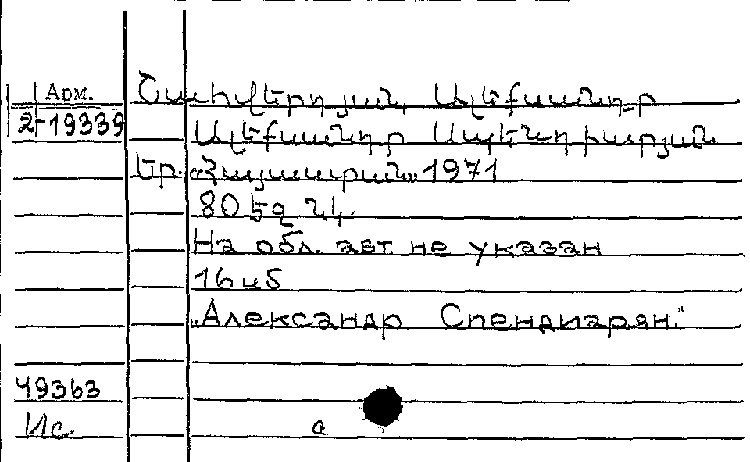 Арм.
2-19339
Շահվերդյան, Ալեքսանդր
Ալեքսանդր Սպենդիարյան
Եր. «Հայաստան» 1971
80 էջ նկ.
На обл. авт. не указан
16 иб
„Александр Спендиарян."
49363
Ис.
а